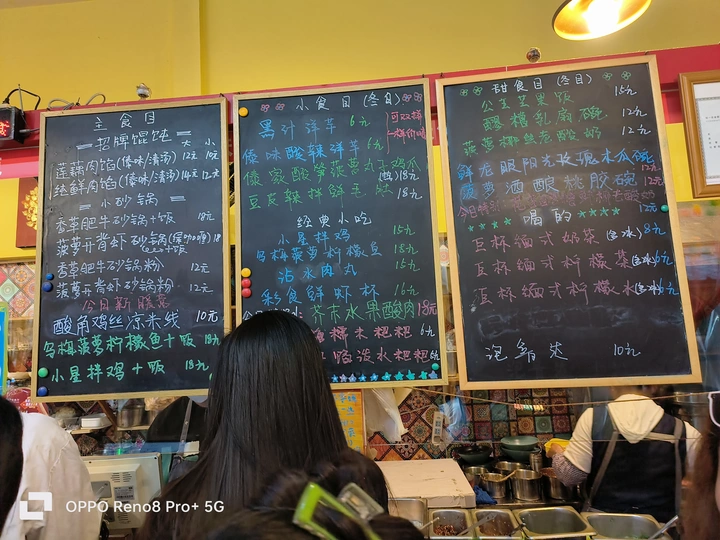 主食目
招牌馄饨 大 小
莲藕肉馅(傣味/清汤) 12元 10元
经鲜肉馅(傣味/清汤) 14元 12元
=小砂锅=
香草肥牛砂锅+饭 18元
菠萝开背虾砂锅 +饭 18
香草肥牛砂锅粉 12元
菠萝开背虾砂锅粉 12元
今日新
酸角鸡丝凉米线 10元
乌梅菠萝柠檬鱼+饭 18元
小星拌鸡+饭 18元
小食目(冬日)
可双拼
一样价哦
黑汁洋芋 6元
傣味酸辣洋芋 6元
傣家酸笋菠萝丸子鸡爪 18元
豆豉辣拌鲜毛肚 18元
经典小吃
小星拌鸡 15元
乌梅菠萝柠檬鱼 15元
沾水肉丸 15元
彩食鲜虾杯 16元
芥末水果酸肉 18元
糯米粑粑 6元
泼水粑粑 6元
甜食目(冬日)
公主芒果饭 15元
醪糟乳扇碗 12元
菠萝椰丝老酸奶 12元
鲜龙眼阳光玫瑰木瓜碗
菠萝酒酿桃胶碗 12元
今日特别 12元
****喝的****
豆杯缅式奶茶(含冰) 8元
豆杯缅式柠檬茶(含冰) 6元
豆杯缅式柠檬水(含冰) 6元
泡鲁达 10元
OPPO Reno8 Pro+ 5G